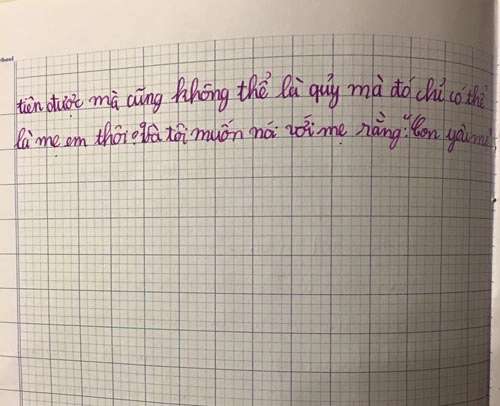 tiên được mà cũng không thể là quỷ mà đó chỉ có thể
là mẹ em thôi. Và tôi muốn nói với mẹ rằng: "Con yêu mẹ